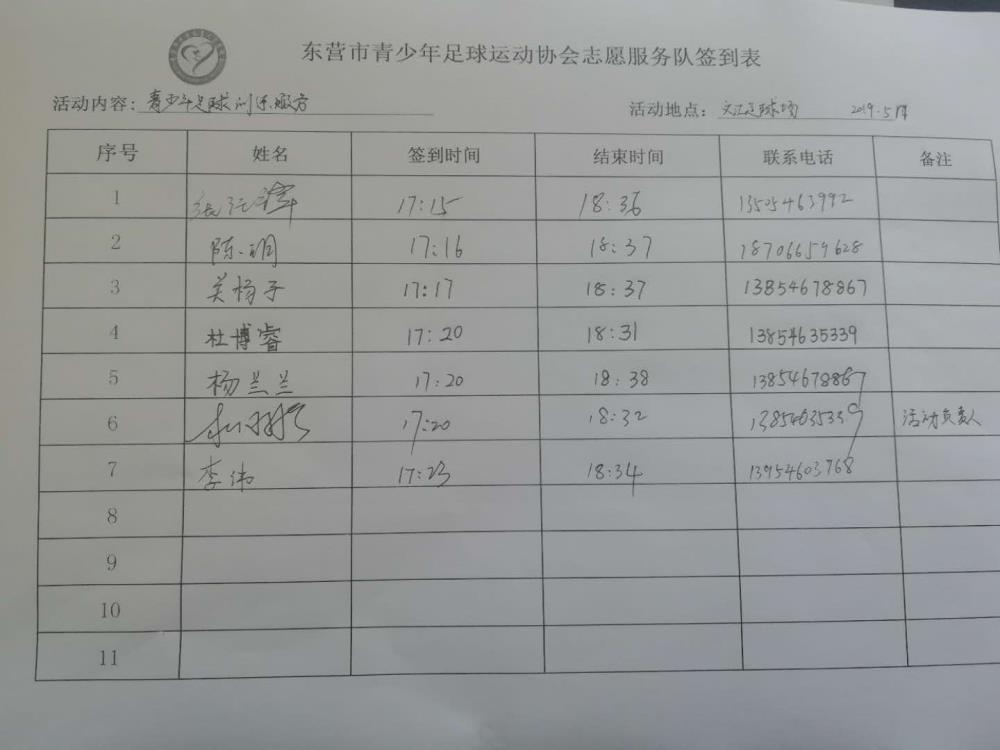 东营市青少年足球运动协会志愿服务队签到表
活动内容：青少年足球训练服务
活动地点： 足球场 2019.5.
序号 姓名 签到时间 结束时间 联系电话 备注
1 17:15 18:36 13505463992
2 陈明 17:16 18:37 18706659628
3 关杨子 17:17 18:37 13854678867
4 杜博睿 17:20 18:31 13854635339
5 杨兰兰 17:20 18:38 13854678867
6 17:20 18:32 13854635339 活动负责人
7 李伟 17:23 18:34 13954603768
8
9
10
11